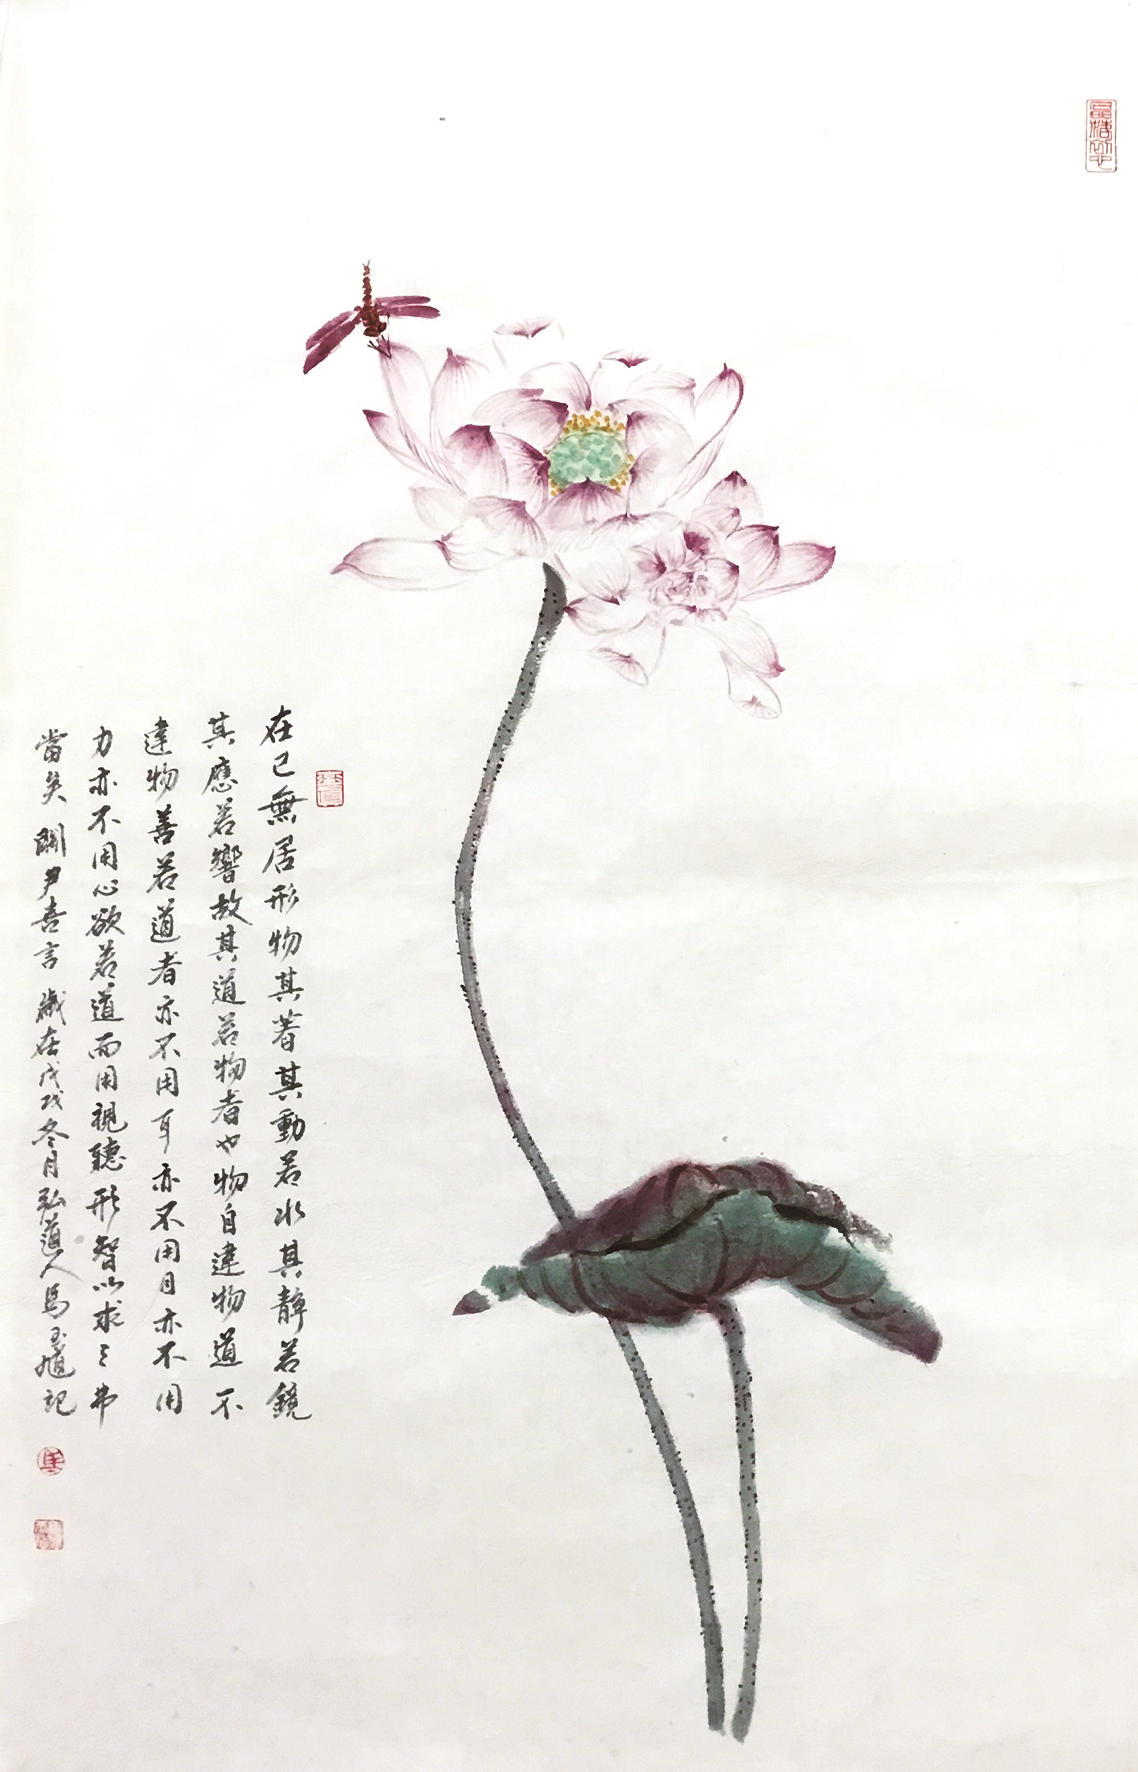 在己無居形物其著其動若水其靜若鏡
其應若響故其道若物者也物自違物道不
違物善若道者亦不用耳亦不用目亦不用
力亦不用心欲若道而用視聽形智以求之弗
當矣關尹喜言歲在戊戌冬月弘道人馬玉馗記